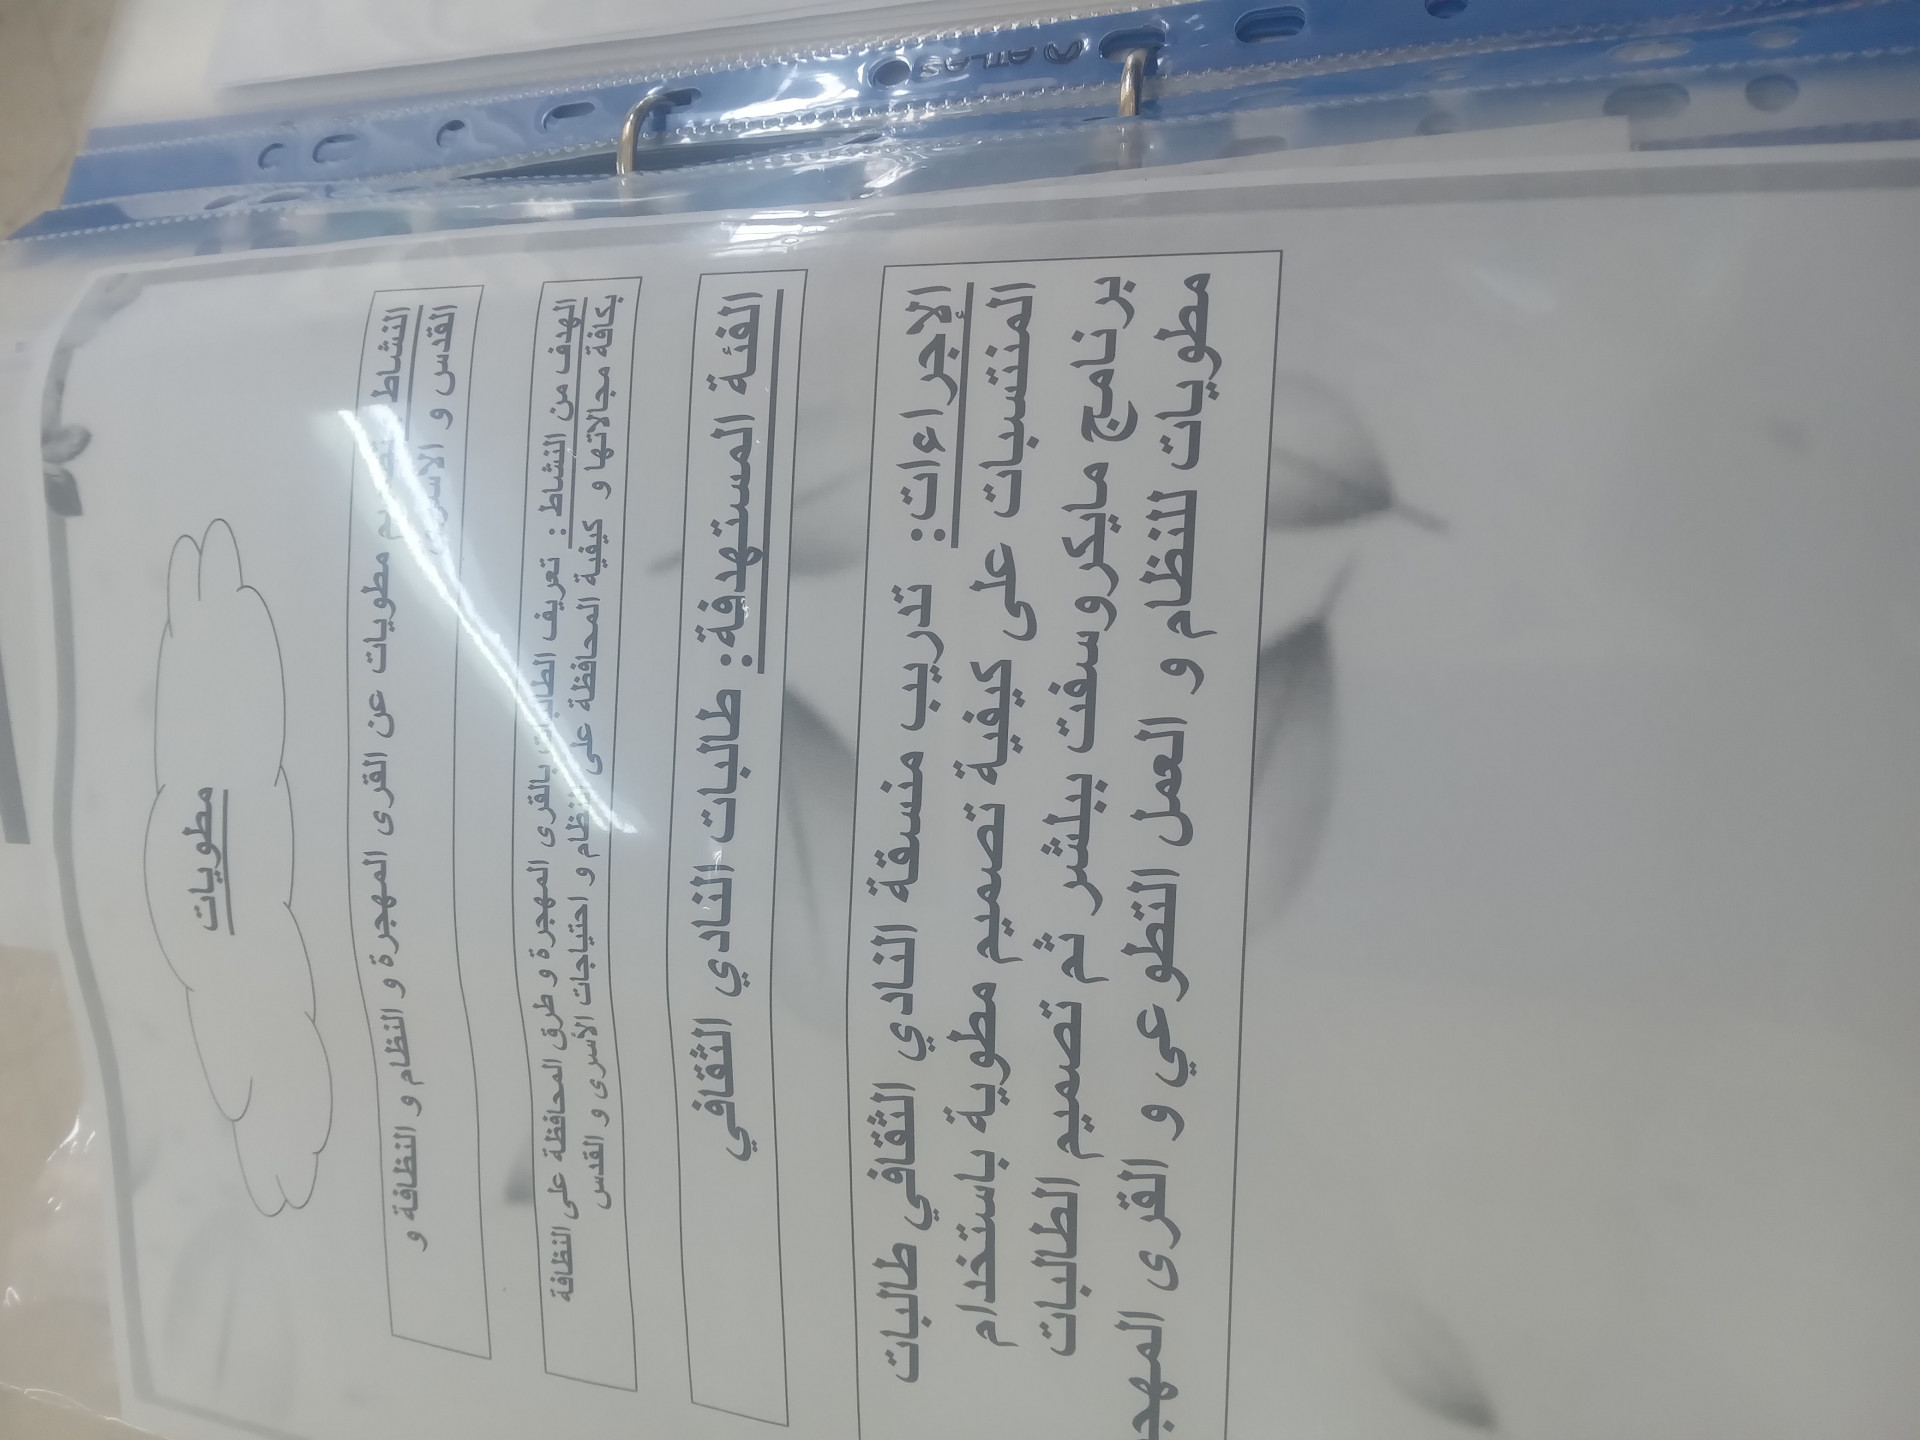 مطويات
النشاط: تصميم مطويات عن القرى المهجرة و النظام و النظافة و
القدس و الاسرى
الهدف من النشاط : تعريف الطالبات بالقرى المهجرة و طرق المحافظة على النظافة
بكافة مجالاتها و كيفية المحافظة على النظام و احتياجات الأسرى و القدس
الفئة المستهدفة: طالبات النادي الثقافي
الإجراءات: تدريب منسقة النادي الثقافي طالبات
المنتسبات على كيفية تصميم مطوية باستخدام
برنامج مايكروسفت ببلشر ثم تصميم الطالبات
مطويات للنظام و العمل التطوعي و القرى